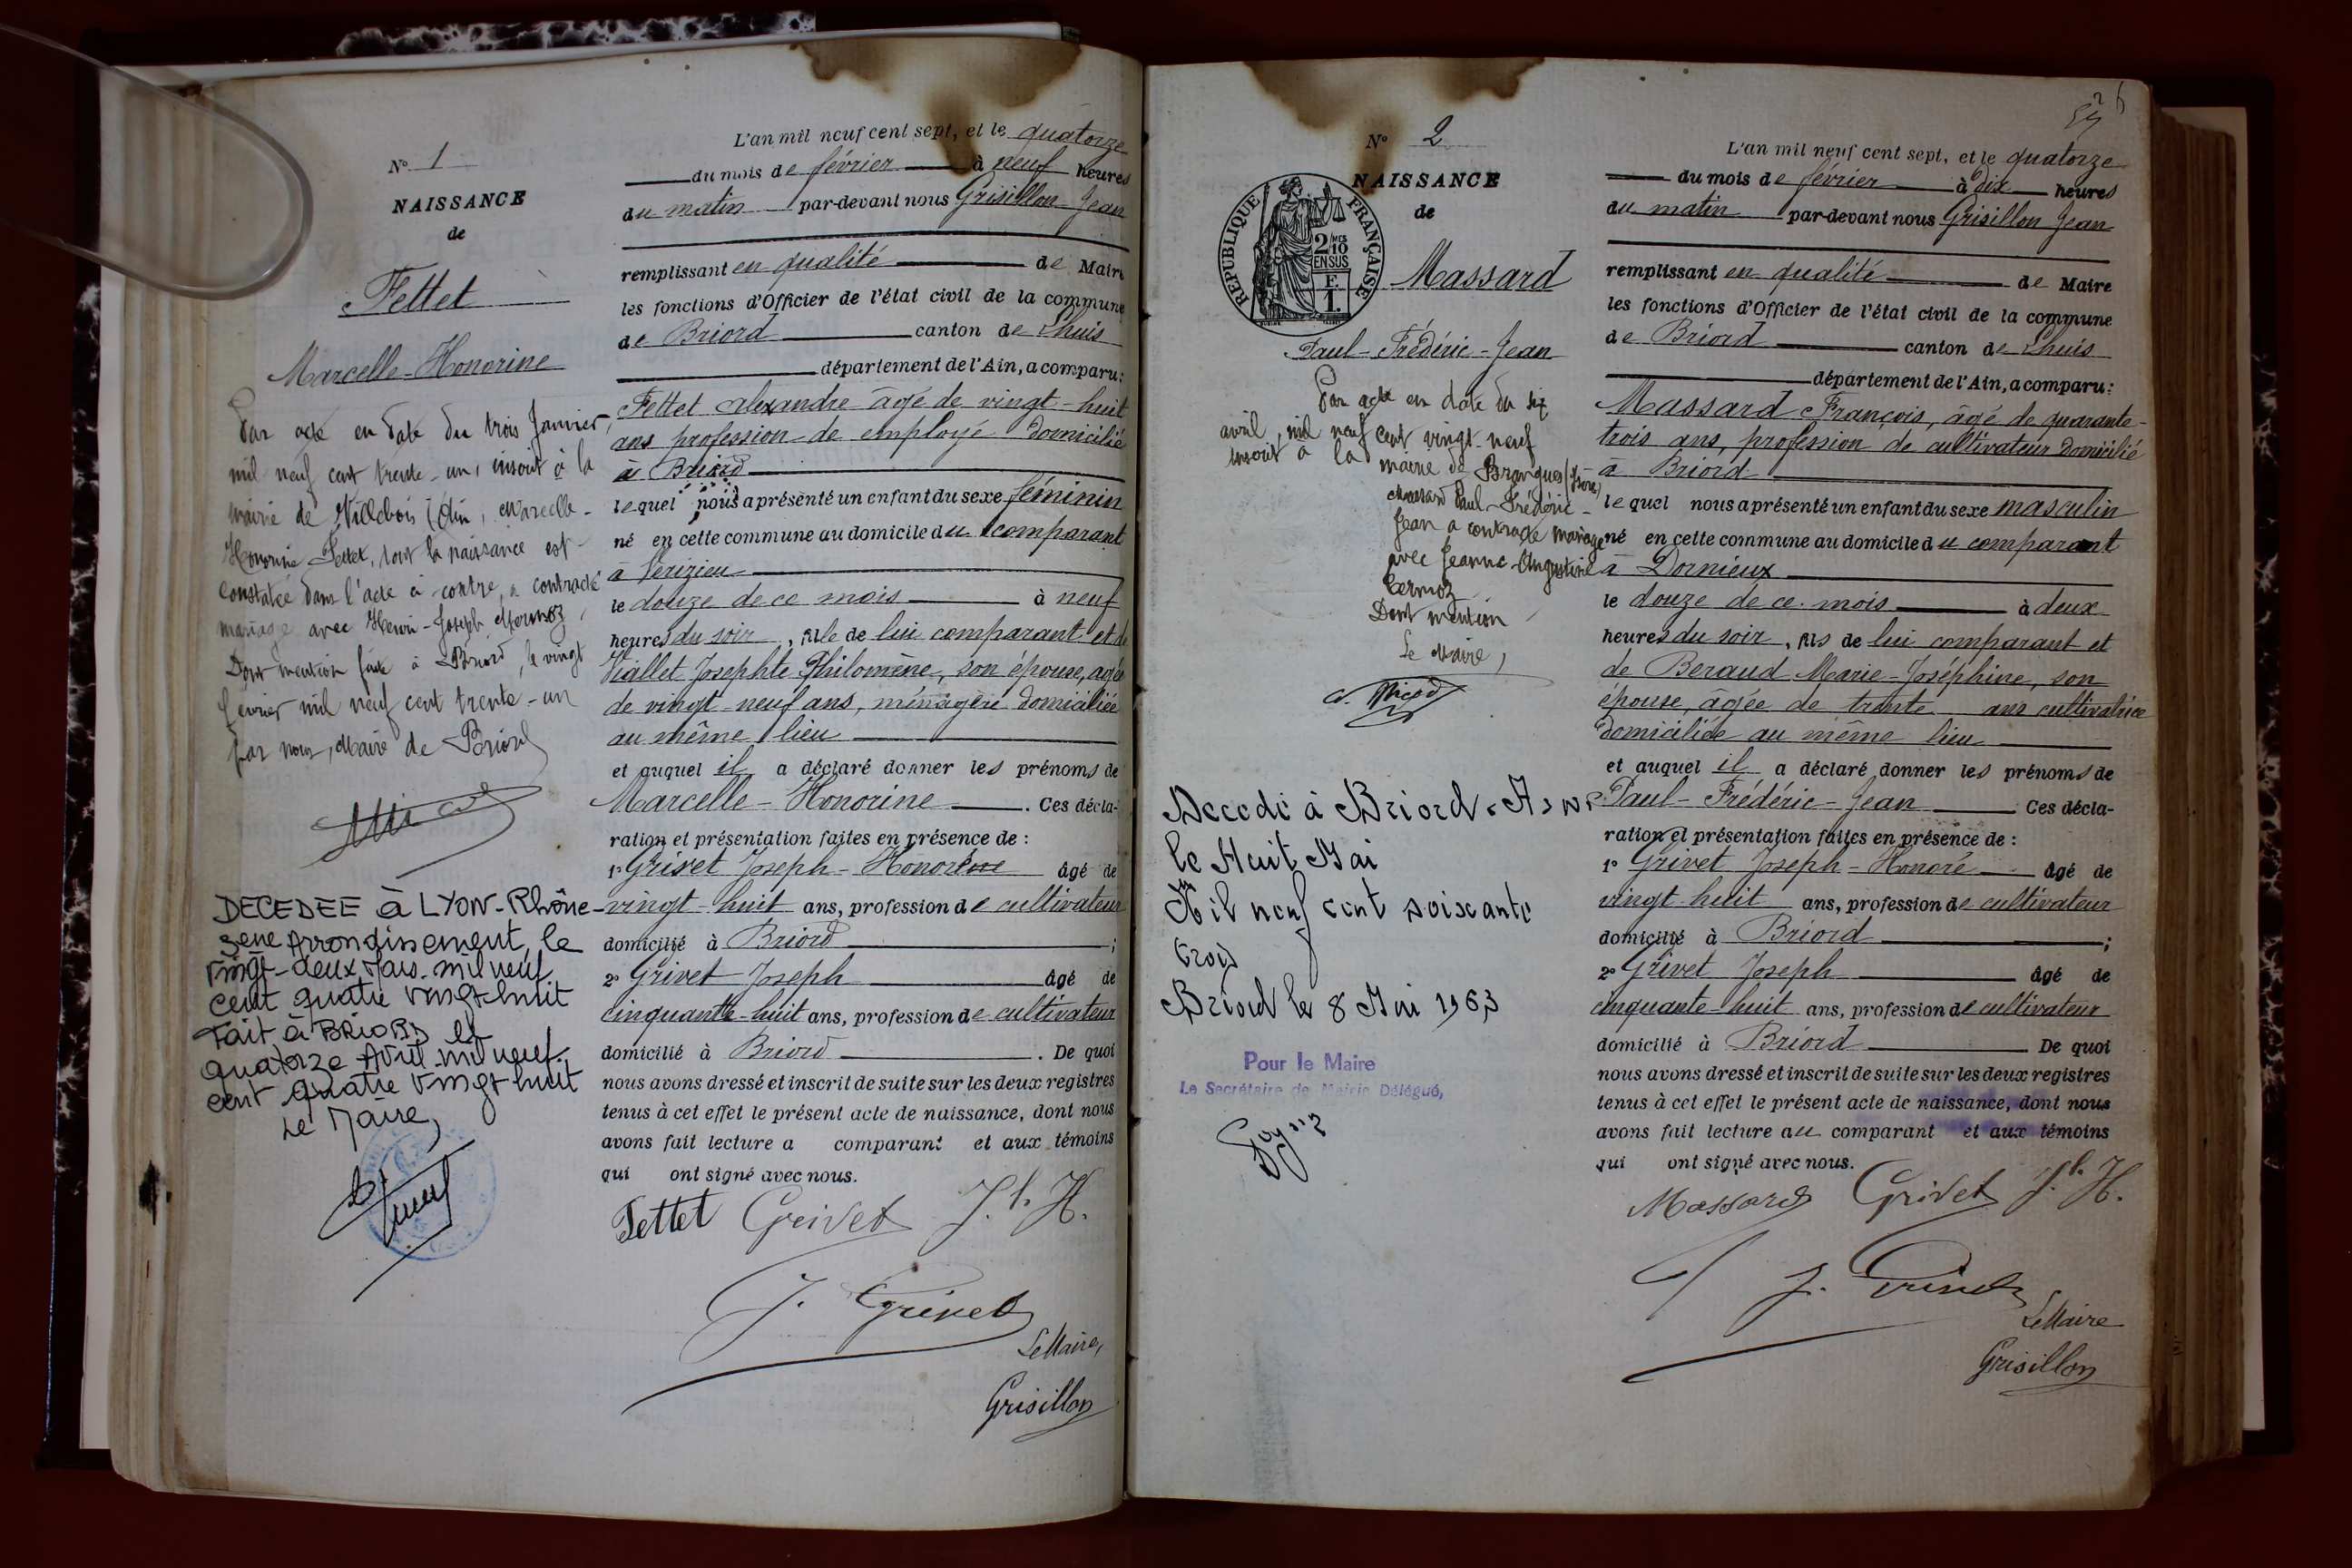 N° 1
NAISSANCE
de
Fettet
Marcelle-Honorine
Par acte en date du trois Janvier,
mil neuf cent trente-un, inscrit à la
mairie de Villebois (Ain, Marcelle-
Honorine Fettet, dont la naissance est
constatée dans l'acte ci-contre, a contracté
mariage avec Henri-Joseph Mermoz,
Dont mention faite à Briord, le vingt
février mil neuf cent trente-un
par nous, Maire de Briord
DECEDEE à LYON-Rhône-
3ème Arrondissement, le
vingt-deux Mars mil neuf
cent quatre vingt huit
Fait à BRIORD le
quatorze Avril mil neuf
cent quatre vingt huit
Le Maire,
L'an mil neuf cent sept, et le quatorze
du mois de février à neuf heures
du matin par-devant nous Grisillon Jean
remplissant en qualité de Maire
les fonctions d'Officier de l'état civil de la commune
de Briord canton de Lhuis
département de l'Ain, a comparu:
Fettet Alexandre âgé de vingt-huit
ans profession de employé domicilié
à Briord
lequel nous a présenté un enfant du sexe féminin
né en cette commune au domicile du comparant
à Vérizieu
le douze de ce mois à neuf
heures du soir, fille de lui comparant et de
Viallet Josephte Philomène, son épouse, agée
de vingt-neuf ans, ménagère domiciliée
au même lieu
et auquel il a déclaré donner les prénoms de
Marcelle-Honorine. Ces décla-
ration et présentation faites en présence de :
1° Grivet Joseph-Honoré âgé de
vingt-huit ans, profession de cultivateur
domicilié à Briord ;
2° Grivet Joseph âgé de
cinquante-huit ans, profession de cultivateur
domicilié à Briord. De quoi
nous avons dressé et inscrit de suite sur les deux registres
tenus à cet effet le présent acte de naissance, dont nous
avons fait lecture a comparant et aux témoins
qui ont signé avec nous.
Fettet Grivet J.h H.
J. Grivet
Le Maire,
Grisillon
N° 2
NAISSANCE
de
REPUBLIQUE FRANÇAISE
2/10
EN SUS
F.
1.
Massard
Paul-Frédéric-Jean
Par acte en date du six
avril mil neuf cent vingt-neuf
inscrit à la mairie de Brangues (Isère)
Massard Paul-Frédéric-
Jean a contracté mariage
avec Jeanne-Augustine
Cermoz
Dont mention
Le Maire,
Decedé à Briord. Ain
le Huit Mai
Mil neuf cent soixante
trois
Briord le 8 Mai 1963
Pour le Maire
Le Secrétaire de Mairie Délégué,
L'an mil neuf cent sept, et le quatorze
du mois de février à dix heures
du matin par-devant nous Grisillon Jean
remplissant en qualité de Maire
les fonctions d'Officier de l'état civil de la commune
de Briord canton de Lhuis
département de l'Ain, a comparu:
Massard François, âgé de quarante-
trois ans, profession de cultivateur domicilié
à Briord
lequel nous a présenté un enfant du sexe masculin
né en cette commune au domicile du comparant
à Dornieux
le douze de ce mois à deux
heures du soir, fils de lui comparant et
de Beraud Marie-Joséphine, son
épouse, âgée de trente ans cultivatrice
domiciliée au même lieu
et auquel il a déclaré donner les prénoms de
Paul-Frédéric-Jean Ces décla-
ration et présentation faites en présence de :
1° Grivet Joseph-Honoré âgé de
vingt-huit ans, profession de cultivateur
domicilié à Briord ;
2° Grivet Joseph âgé de
cinquante-huit ans, profession de cultivateur
domicilié à Briord De quoi
nous avons dressé et inscrit de suite sur les deux registres
tenus à cet effet le présent acte de naissance, dont nous
avons fait lecture au comparant et aux témoins
qui ont signé avec nous.
Massard Grivet J.h. H.
J. Grivet
Le Maire
Grisillon